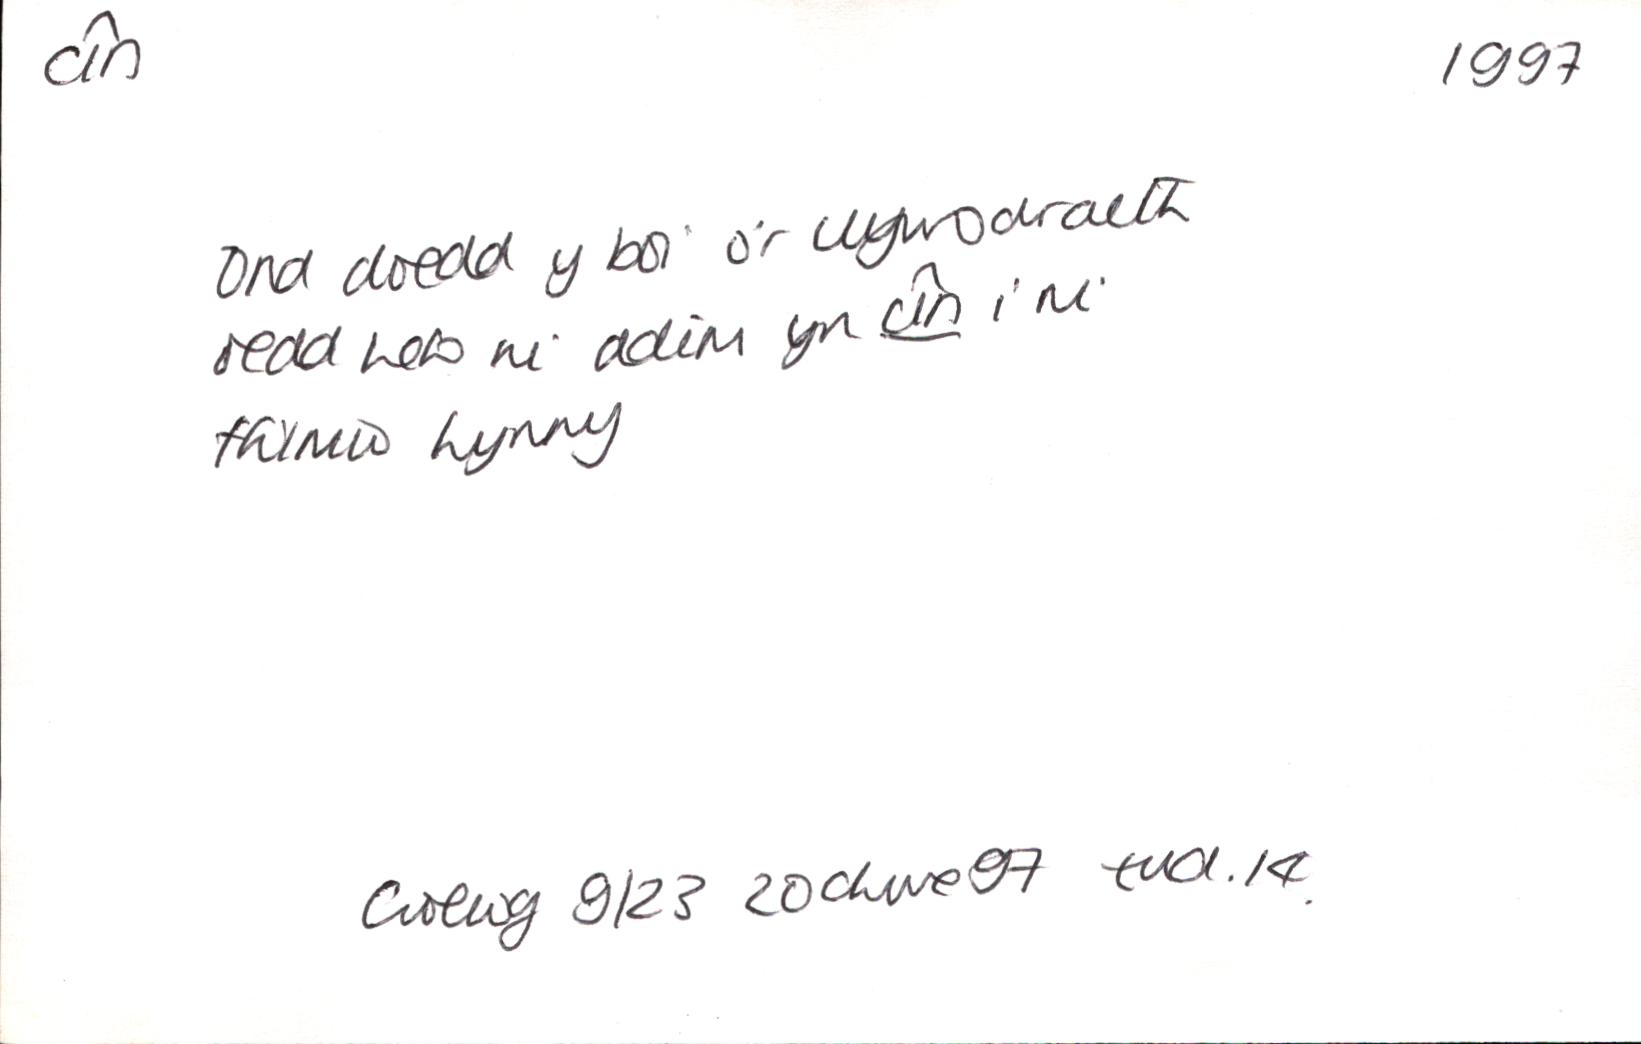 cîn 1997
Ond doedd y boi o'r llywodraeth
oedd hefo ni ddim yn cîn i ni
ffilmio hynny
Golwg 9/23 20 chwe 97 tud. 14.